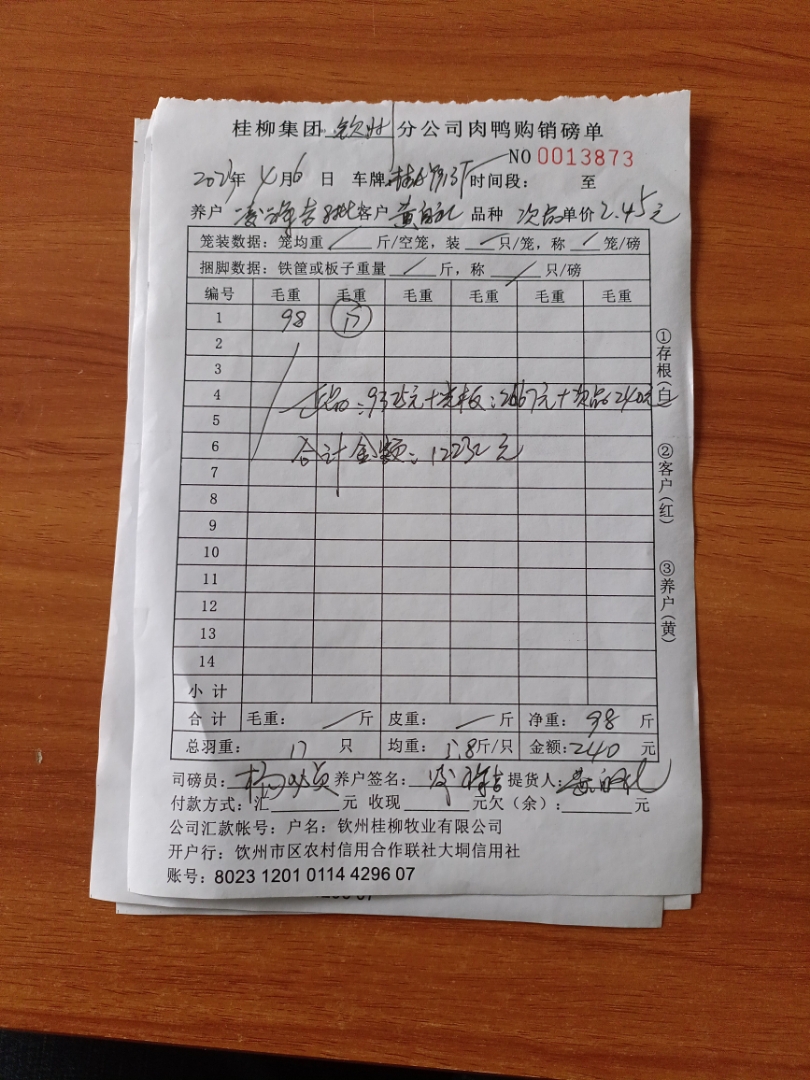 桂柳集团 钦州 分公司肉鸭购销磅单
NO 0013873
年 4月6日 车牌: 时间段: 至
养户 客户 黄 品种 次品 单价 2.45元
笼装数据: 笼均重 / 斤/空笼, 装 / 只/笼, 称 / 笼/磅
捆脚数据: 铁筐或板子重量 / 斤, 称 / 只/磅
编号 毛重 毛重 毛重 毛重 毛重 毛重
1 98 17
2
3
4 :9325元+ :2667元+次品:240元
5
6 合计金额:12232元
7
8
9
10
11
12
13
14
小计
合计 毛重: / 斤 皮重: / 斤 净重: 98 斤
总羽重: 17 只 均重: 5.8斤/只 金额:240 元
司磅员: 杨 养户签名: 提货人: 黄
付款方式: 汇 元 收现 元欠(余): 元
公司汇款帐号: 户名: 钦州桂柳牧业有限公司
开户行: 饮州市区农村信用合作联社大垌信用社
账号: 8023 1201 0114 4296 07
①存根(白)
②客户(红)
③养户(黄)